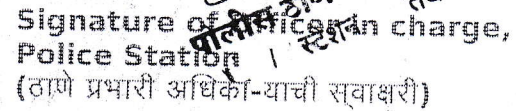 Signature of Officer in charge,
Police Station
(ठाणे प्रभारी अधिका-याची स्वाक्षरी)
पोलीस ठाणे
स्टेशन